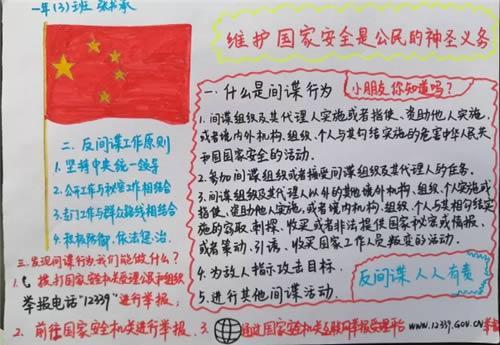 一年(3)班 张书承
维护国家安全是公民的神圣义务
一.什么是间谍行为
小朋友你知道吗?
1.间谍组织及其代理人实施或者指使、资助他人实施,
或者境内外机构、组织、个人与其勾结实施的危害中华人民共
和国国家安全的活动.
2.参加间谍组织或者接受间谍组织及其代理人的任务.
3.间谍组织及其代理人以外的其他境外机构、组织、个人实施或
指使、资助他人实施,或者境内机构、组织、个人与其相勾结实
施的窃取、刺探、收买或者非法提供国家秘密或情报,
或者策动、引诱、收买国家工作人员叛变的活动.
4.为敌人指示攻击目标.
5.进行其他间谍活动.
反间谍 人人有责
二.反间谍工作原则
1.坚持中央统一领导
2.公开工作与秘密工作相结合
3.专门工作与群众路线相结合
4.积极防御、依法惩治.
三.发现间谍行为我们能做什么?
1.拨打国家安全机关受理公民和组织
举报电话"12339"进行举报;
2.前往国家安全机关进行举报.
3.通过国家安全机关互联网举报受理平台 WWW.12339.GOV.CN举报